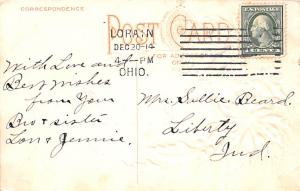 CORRESPONDENCE
POST CARD
LORAIN
DEC 20-14
4-PM
OHIO.
With Love and
Best Wishes
from Your
Bro & sister
Lon & Jennie.
Mrs. Sillie Beard.
Liberty
Ind.